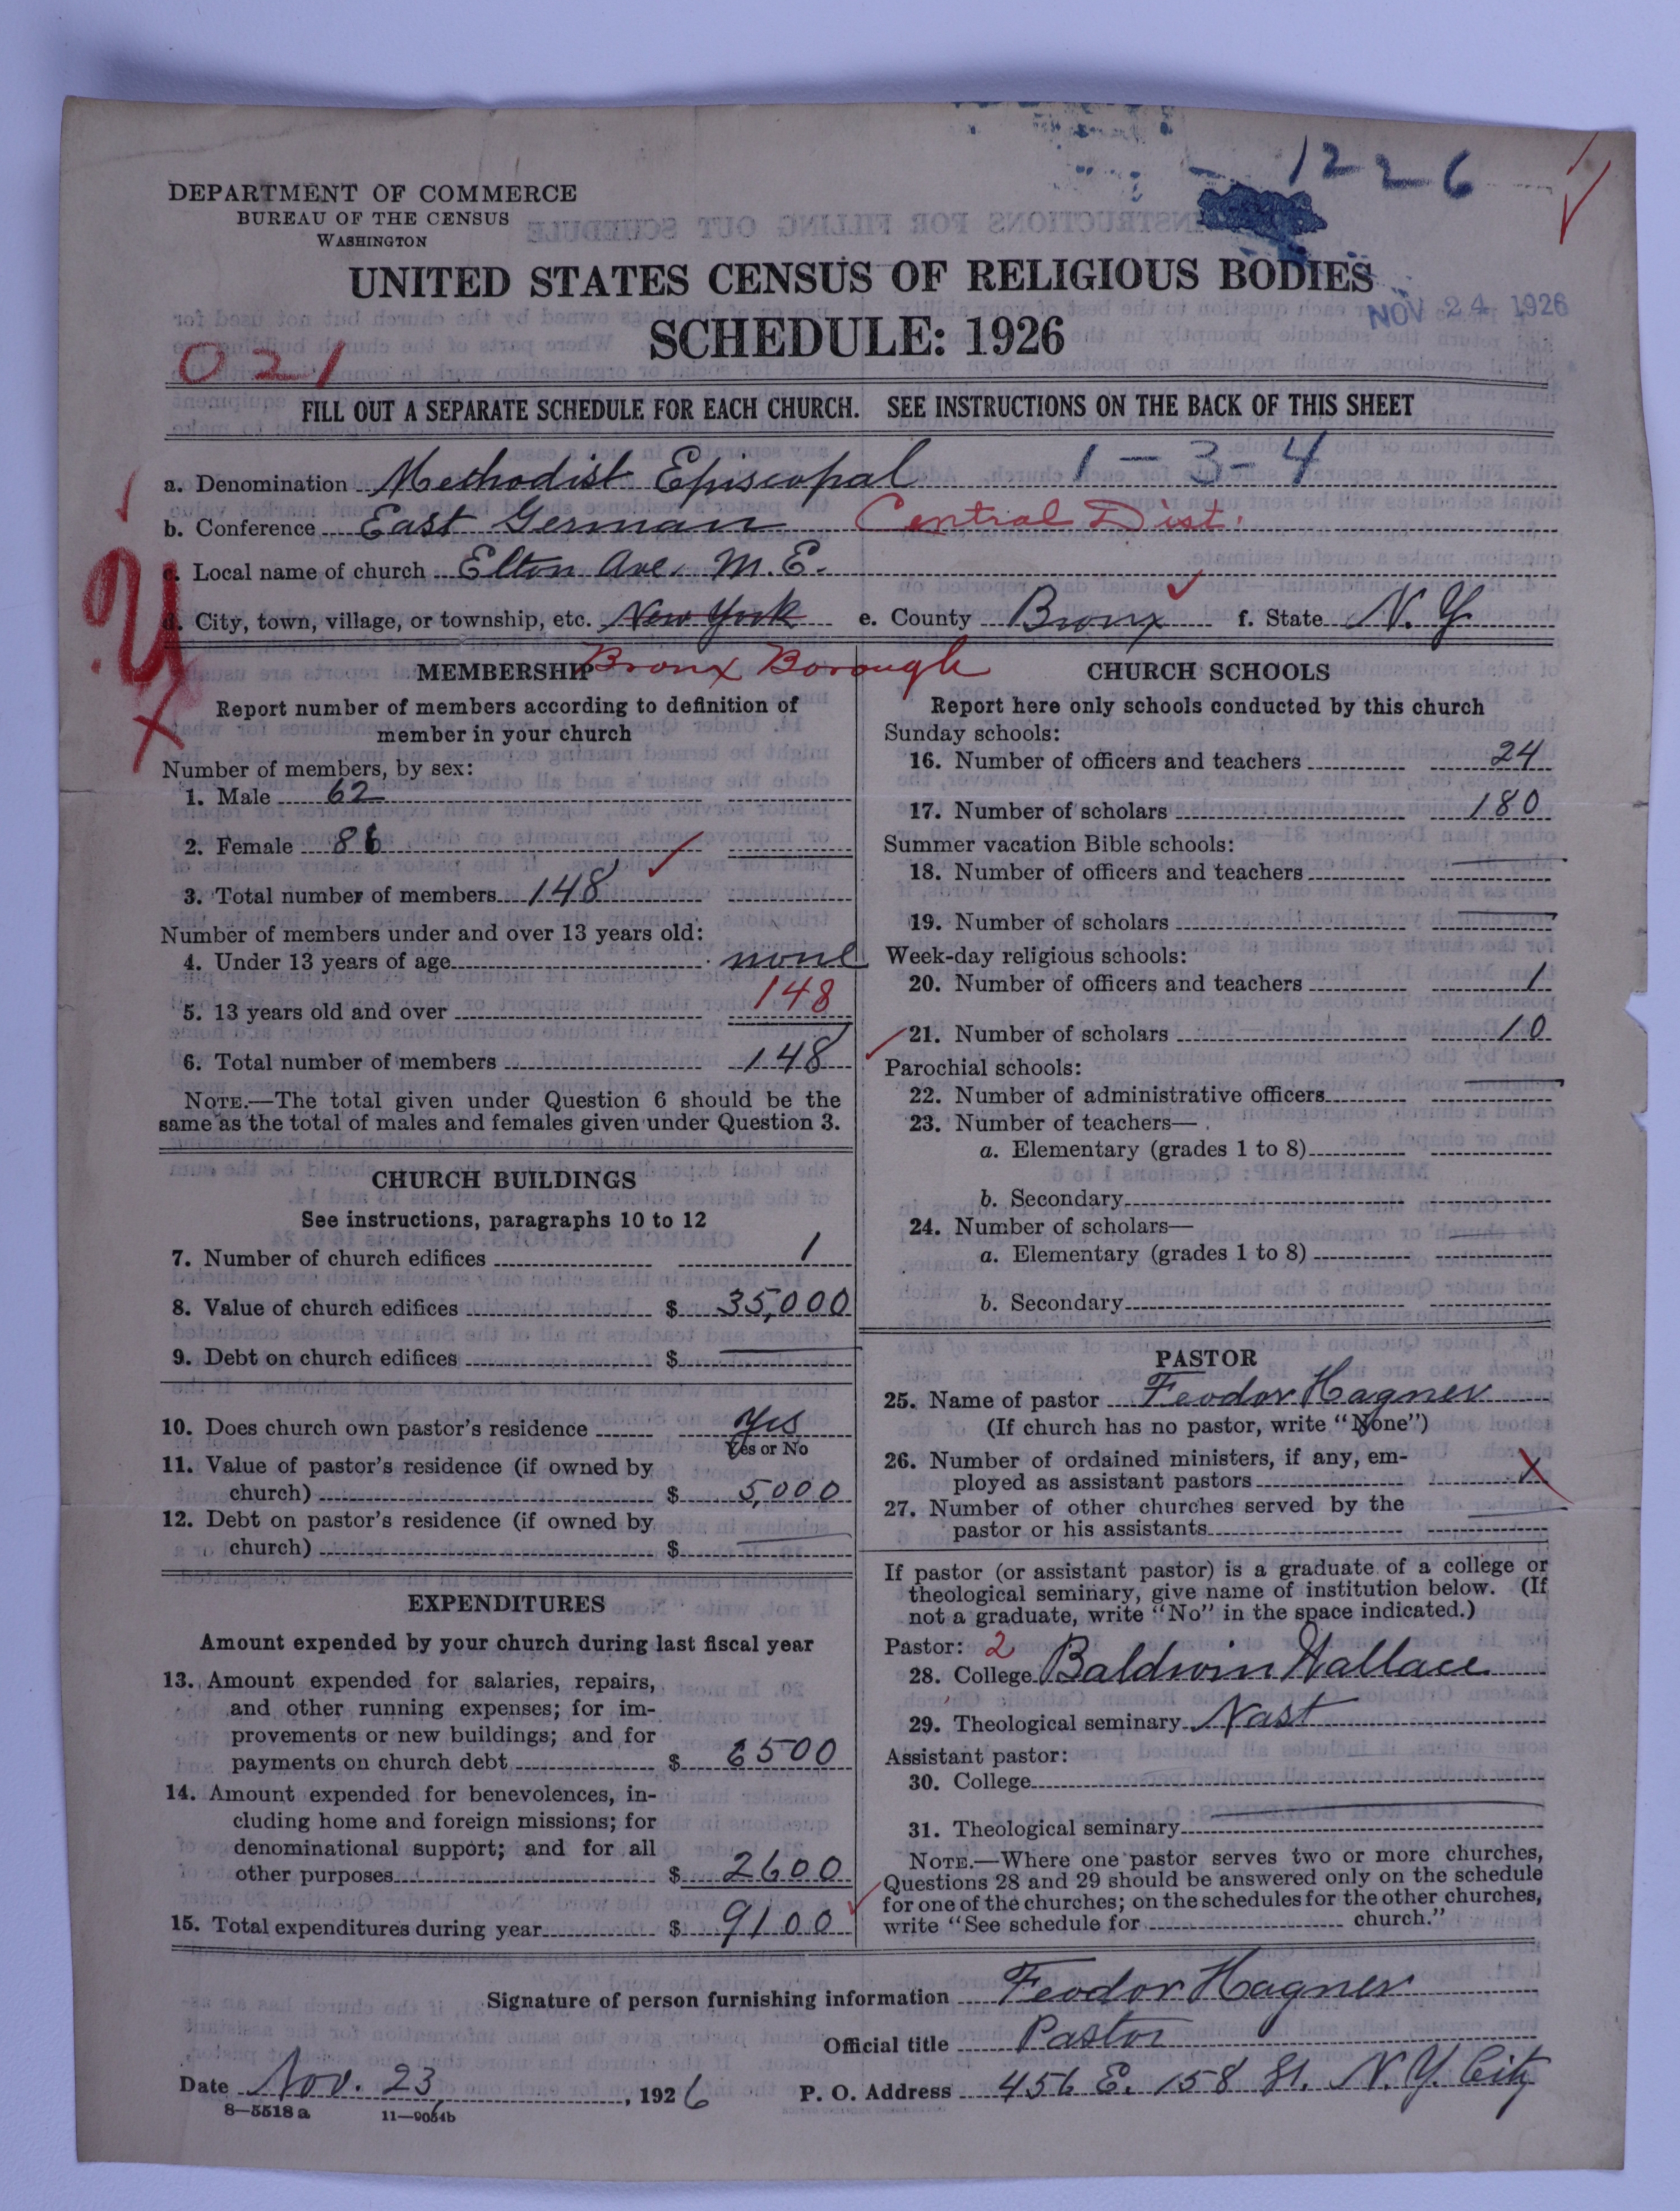 1226
DEPARTMENT OF COMMERCE
BUREAU OF THE CENSUS
WASHINGTON
UNITED STATES CENSUS OF RELIGIOUS BODIES
NOV 24 1926
SCHEDULE: 1926
021
FILL OUT A SEPARATE SCHEDULE FOR EACH CHURCH. SEE INSTRUCTIONS ON THE BACK OF THIS SHEET
a. Denomination Methodist Episcopal 1-3-4
b. Conference East German Central Dist.
c. Local name of church Elton Ave. M.E.
d. City, town, village, or township, etc. New York e. County Bronx f. State N.Y.
Bronx Borough
MEMBERSHIP
Report number of members according to definition of
member in your church
Number of members, by sex:
1. Male 62
2. Female 86
3. Total number of members 148
Number of members under and over 13 years old:
4. Under 13 years of age none
5. 13 years old and over 148
6. Total number of members 148
NOTE.—The total given under Question 6 should be the
same as the total of males and females given under Question 3.
CHURCH BUILDINGS
See instructions, paragraphs 10 to 12
7. Number of church edifices 1
8. Value of church edifices $ 35,000
9. Debt on church edifices $
10. Does church own pastor's residence Yes
Yes or No
11. Value of pastor's residence (if owned by
church) $ 5,000
12. Debt on pastor's residence (if owned by
church) $
EXPENDITURES
Amount expended by your church during last fiscal year
13. Amount expended for salaries, repairs,
and other running expenses; for im-
provements or new buildings; and for
payments on church debt $ 6500
14. Amount expended for benevolences, in-
cluding home and foreign missions; for
denominational support; and for all
other purposes $ 2600
15. Total expenditures during year $ 9100
CHURCH SCHOOLS
Report here only schools conducted by this church
Sunday schools:
16. Number of officers and teachers 24
17. Number of scholars 180
Summer vacation Bible schools:
18. Number of officers and teachers
19. Number of scholars
Week-day religious schools:
20. Number of officers and teachers 1
21. Number of scholars 10
Parochial schools:
22. Number of administrative officers
23. Number of teachers—
a. Elementary (grades 1 to 8)
b. Secondary
24. Number of scholars—
a. Elementary (grades 1 to 8)
b. Secondary
PASTOR
25. Name of pastor Feodor Hagner
(If church has no pastor, write "None")
26. Number of ordained ministers, if any, em-
ployed as assistant pastors
27. Number of other churches served by the
pastor or his assistants
If pastor (or assistant pastor) is a graduate of a college or
theological seminary, give name of institution below. (If
not a graduate, write "No" in the space indicated.)
Pastor: 2
28. College Baldwin Wallace
29. Theological seminary Nast
Assistant pastor:
30. College
31. Theological seminary
NOTE.—Where one pastor serves two or more churches,
Questions 28 and 29 should be answered only on the schedule
for one of the churches; on the schedules for the other churches,
write "See schedule for church."
Signature of person furnishing information Feodor Hagner
Official title Pastor
Date Nov. 23, 1926 P. O. Address 456 E. 158 St. N.Y. City
8—5518 a 11—9054b